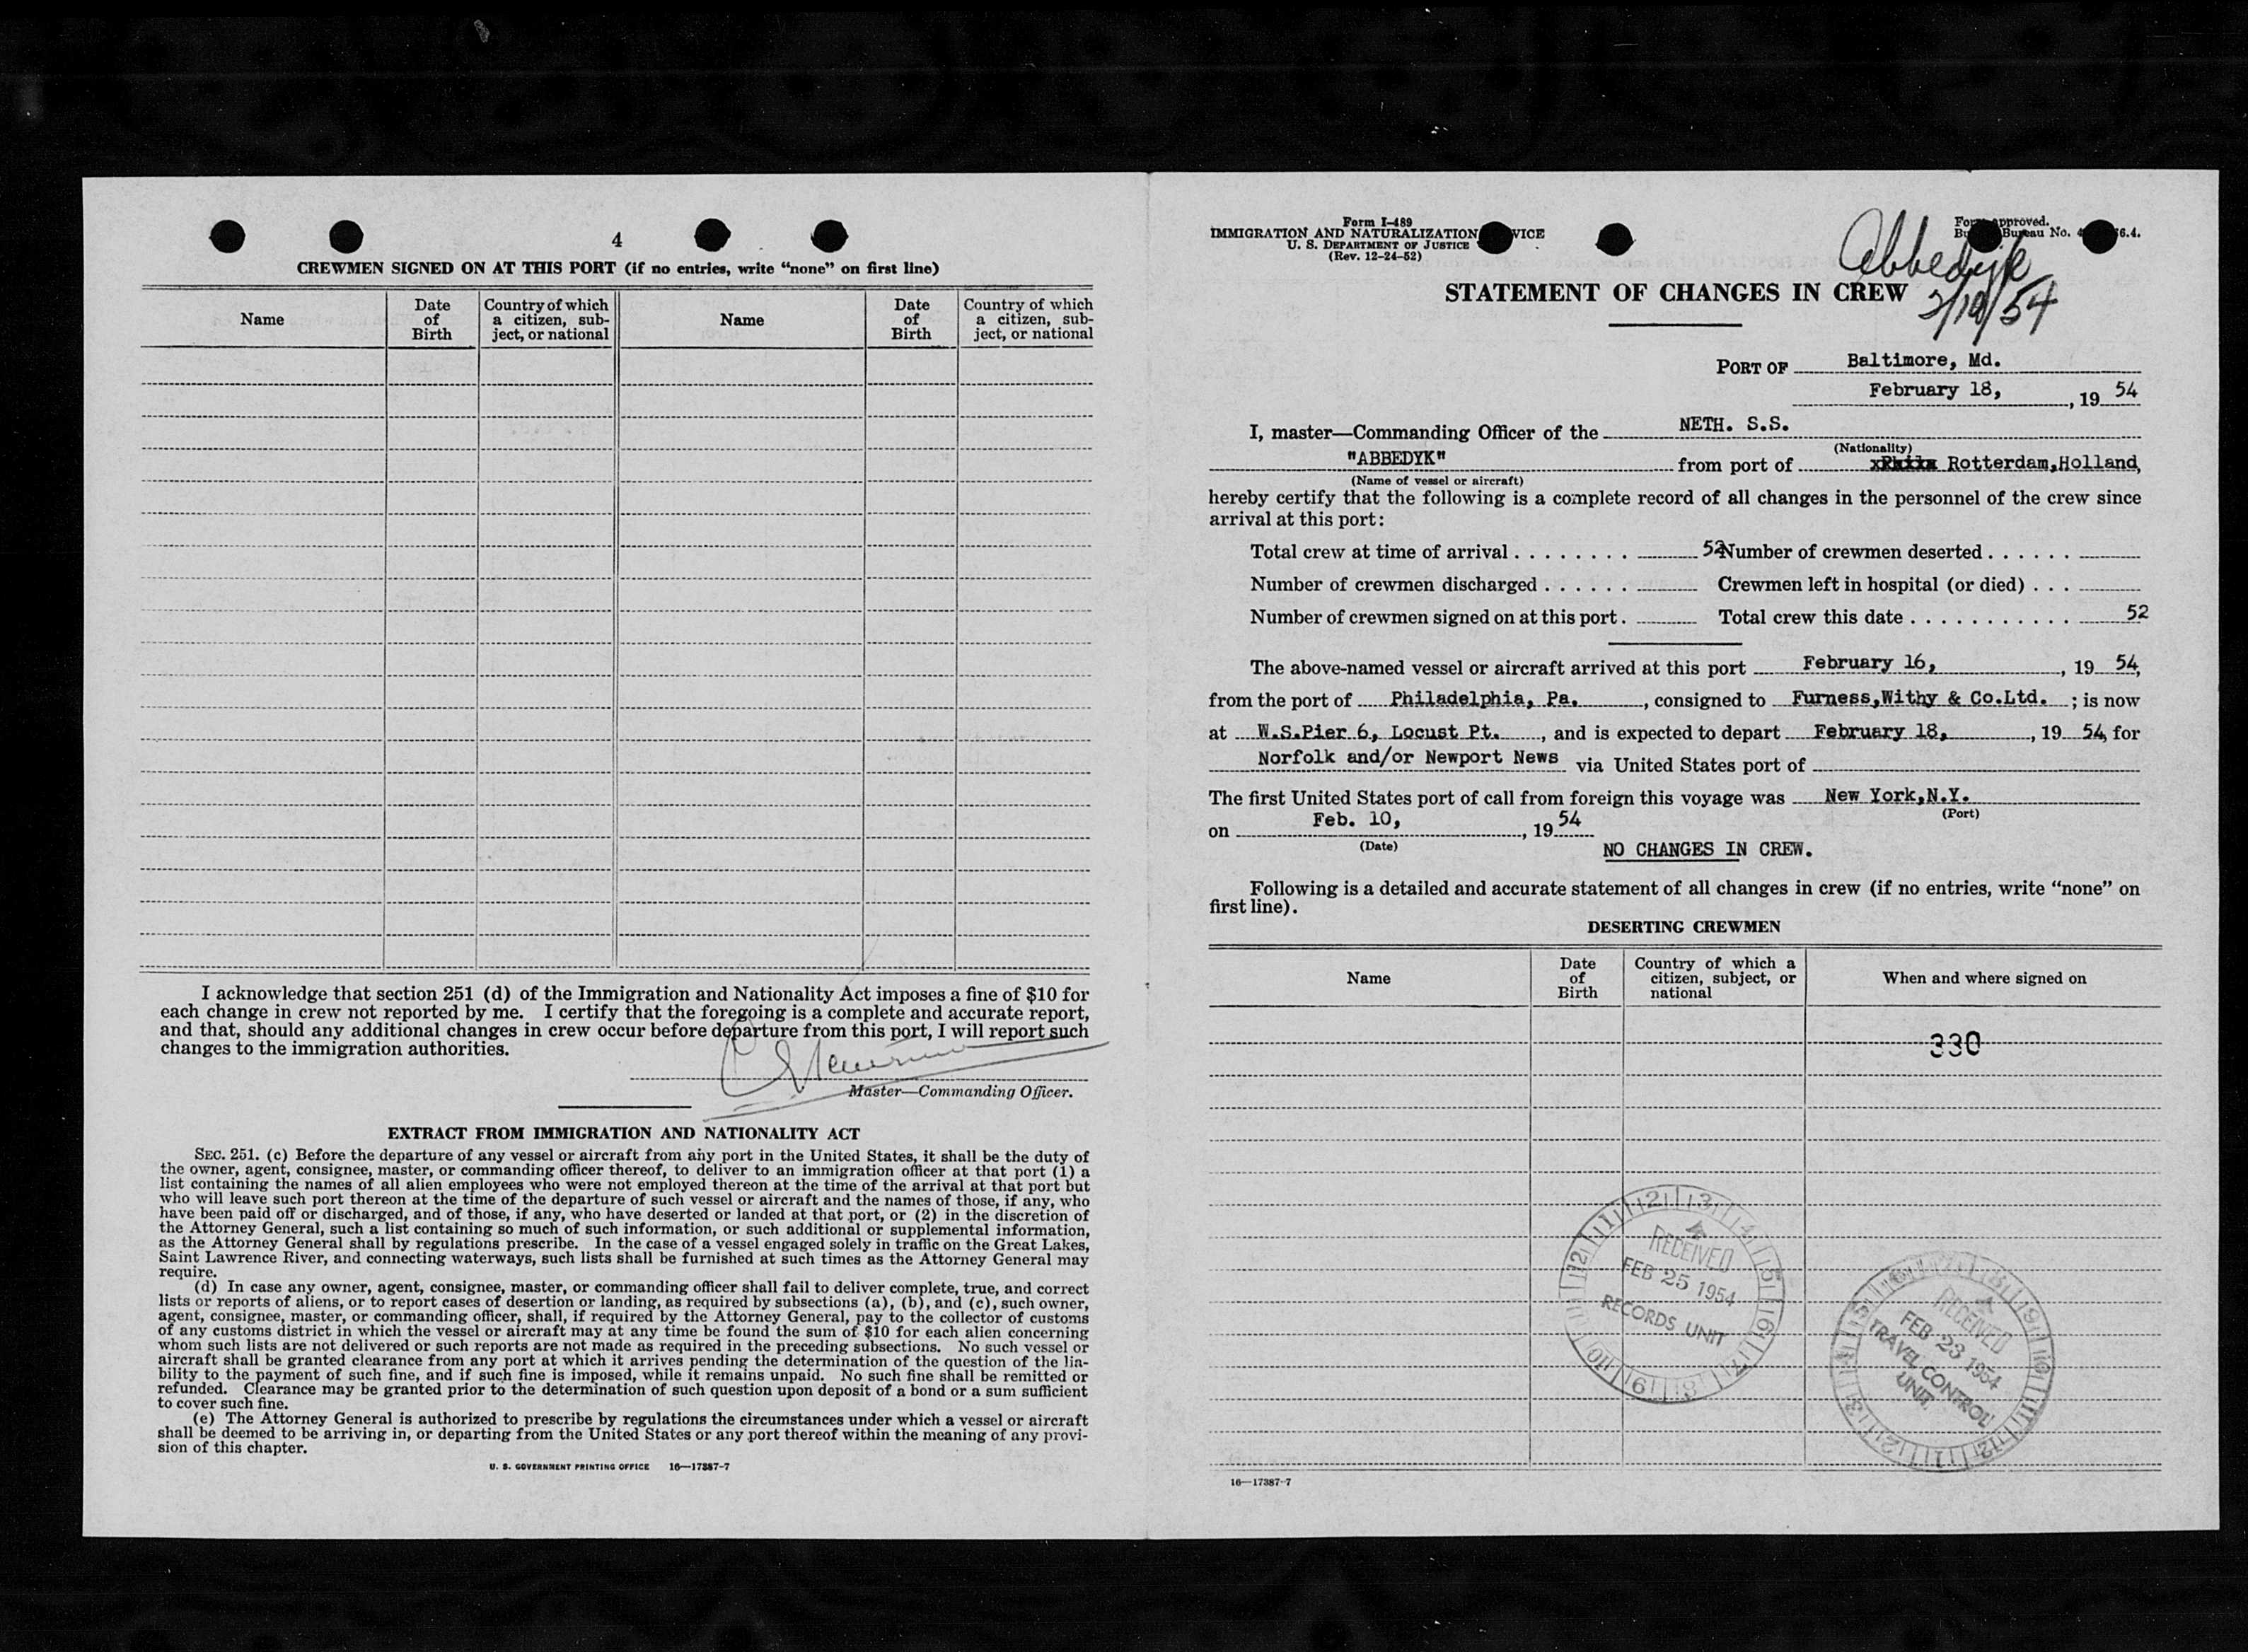 4
CREWMEN SIGNED ON AT THIS PORT (if no entries, write “none” on first line)
Name
Date of Birth
Country of which a citizen, subject, or national
Name
Date of Birth
Country of which a citizen, subject, or national
I acknowledge that section 251 (d) of the Immigration and Nationality Act imposes a fine of $10 for
each change in crew not reported by me. I certify that the foregoing is a complete and accurate report,
and that, should any additional changes in crew occur before departure from this port, I will report such
changes to the immigration authorities.
Master—Commanding Officer.
EXTRACT FROM IMMIGRATION AND NATIONALITY ACT
SEC. 251. (c) Before the departure of any vessel or aircraft from any port in the United States, it shall be the duty of
the owner, agent, consignee, master, or commanding officer thereof, to deliver to an immigration officer at that port (1) a
list containing the names of all alien employees who were not employed thereon at the time of the arrival at that port but
who will leave such port thereon at the time of the departure of such vessel or aircraft and the names of those, if any, who
have been paid off or discharged, and of those, if any, who have deserted or landed at that port, or (2) in the discretion of
the Attorney General, such a list containing so much of such information, or such additional or supplemental information,
as the Attorney General shall by regulations prescribe. In the case of a vessel engaged solely in traffic on the Great Lakes,
Saint Lawrence River, and connecting waterways, such lists shall be furnished at such times as the Attorney General may
require.
(d) In case any owner, agent, consignee, master, or commanding officer shall fail to deliver complete, true, and correct
lists or reports of aliens, or to report cases of desertion or landing, as required by subsections (a), (b), and (c), such owner,
agent, consignee, master, or commanding officer, shall, if required by the Attorney General, pay to the collector of customs
of any customs district in which the vessel or aircraft may at any time be found the sum of $10 for each alien concerning
whom such lists are not delivered or such reports are not made as required in the preceding subsections. No such vessel or
aircraft shall be granted clearance from any port at which it arrives pending the determination of the question of the lia-
bility to the payment of such fine, and if such fine is imposed, while it remains unpaid. No such fine shall be remitted or
refunded. Clearance may be granted prior to the determination of such question upon deposit of a bond or a sum sufficient
to cover such fine.
(e) The Attorney General is authorized to prescribe by regulations the circumstances under which a vessel or aircraft
shall be deemed to be arriving in, or departing from the United States or any port thereof within the meaning of any provi-
sion of this chapter.
U. S. GOVERNMENT PRINTING OFFICE 16—17387-7
Form I-489
IMMIGRATION AND NATURALIZATION VICE
U. S. DEPARTMENT OF JUSTICE
(Rev. 12-24-52)
approved.
Bureau No. 6.4.
Abbedyk
2/10/54
STATEMENT OF CHANGES IN CREW
PORT OF Baltimore, Md.
February 18, , 19 54
I, master—Commanding Officer of the NETH. S.S.
(Nationality)
"ABBEDYK" from port of Rotterdam,Holland,
(Name of vessel or aircraft)
hereby certify that the following is a complete record of all changes in the personnel of the crew since
arrival at this port:
Total crew at time of arrival . . . . . . . . 52 Number of crewmen deserted . . . . . .
Number of crewmen discharged . . . . . . Crewmen left in hospital (or died) . . .
Number of crewmen signed on at this port . Total crew this date . . . . . . . . . . . 52
The above-named vessel or aircraft arrived at this port February 16, , 19 54,
from the port of Philadelphia, Pa. , consigned to Furness,Withy & Co.Ltd. ; is now
at W.S.Pier 6, Locust Pt. , and is expected to depart February 18, , 19 54, for
Norfolk and/or Newport News via United States port of
The first United States port of call from foreign this voyage was New York,N.Y.
(Port)
on Feb. 10, , 19 54
(Date)
NO CHANGES IN CREW.
Following is a detailed and accurate statement of all changes in crew (if no entries, write “none” on
first line).
DESERTING CREWMEN
Name
Date of Birth
Country of which a citizen, subject, or national
When and where signed on
330
RECEIVED
FEB 25 1954
RECORDS UNIT
RECEIVED
FEB 23 1954
TRAVEL CONTROL
UNIT
16—17387-7